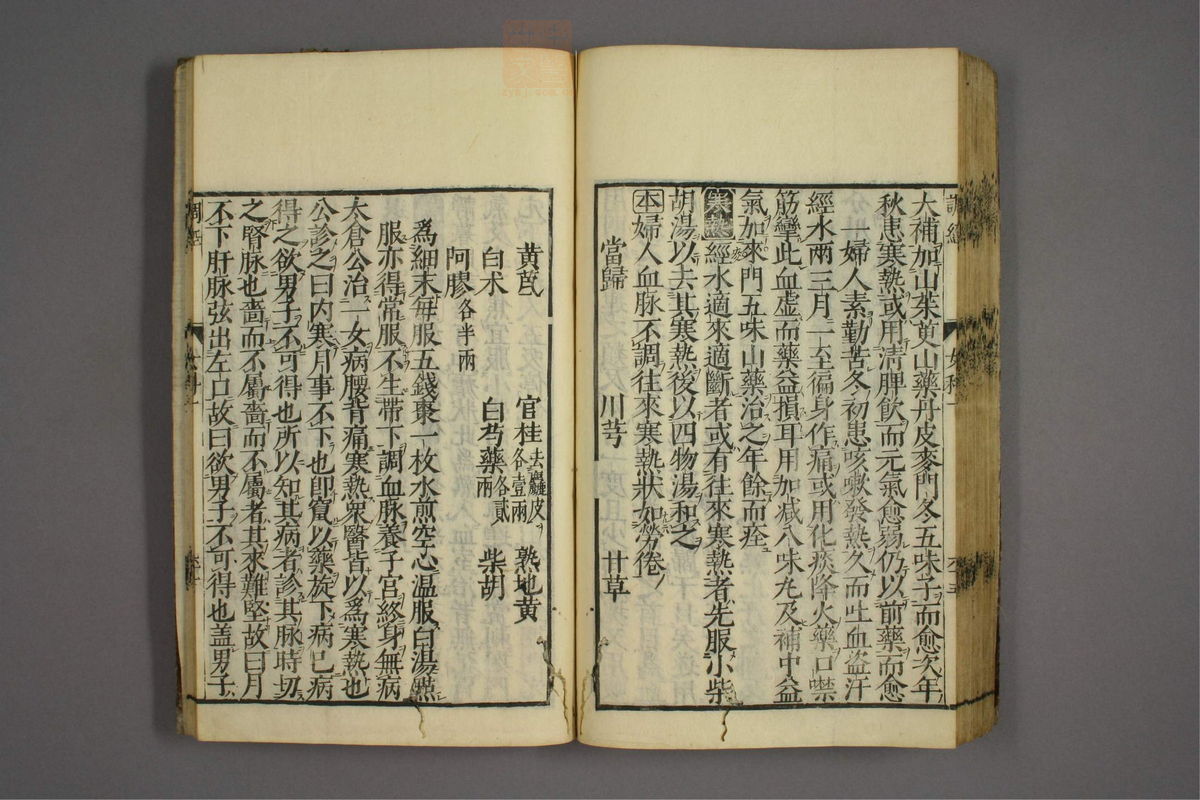 大補加山茱萸山藥丹皮麥門冬五味子而愈次年
秋患寒熱或用清脾飲而元氣愈弱仍以前藥而愈
一婦人素勤苦冬初患咳嗽發熱久而吐血盜汗
經水兩三月一至徧身作痛或用化痰降火藥口噤
筋攣此血虛而藥益損耳用加減八味丸及補中益
氣加麥門五味山藥治之年餘而痊
寒熱經水適來適斷者或有往來寒熱者先服小柴
胡湯以去其寒熱後以四物湯和之
本婦人血脉不調往來寒熱狀如勞倦
當歸 川芎 甘草
黄芪 官桂去麤皮各壹兩 熟地黄
白术 白芍藥各貳兩 柴胡
阿膠各半兩
爲細末每服五錢棗一枚水煎空心温服白湯
服亦得常服不生帶下調血脉養子宮終身無病
太倉公治一女病腰背痛寒熱衆醫皆以爲寒熱也
公診之曰内寒月事不下也卽竄以藥旋下病已病
得之欲男子不可得也所以知其病者診其脉時切
之腎脉也嗇而不屬嗇而不屬者其來難堅故曰月
不下肝脉弦出左口故曰欲男子不可得也盖男子